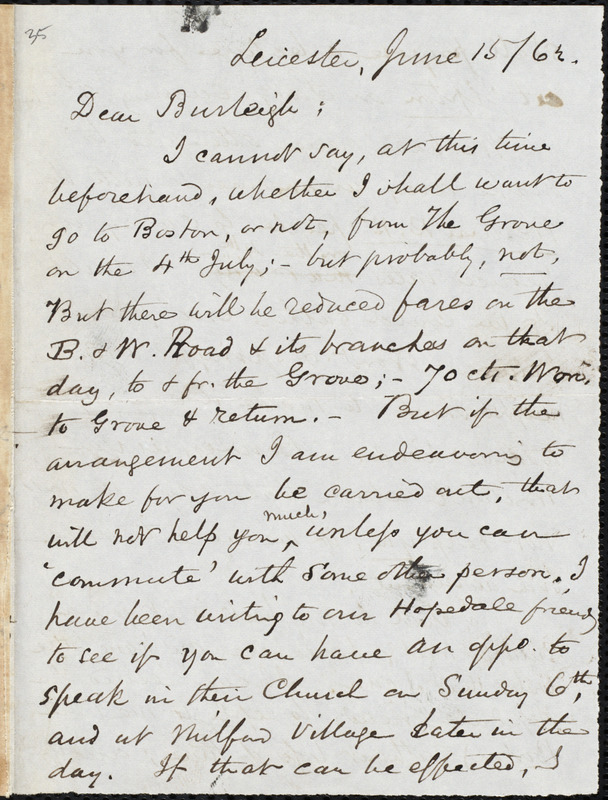 25
Leicester, June 15/62.
Dear Burleigh;
I cannot say, at this time
beforehand, whether I shall want to
go to Boston, or not, from The Grove
on the 4th July; - but probably, not.
But there will be reduced fares on the
B. & W. Road & its branches on that
day, to & fr. the Grove; - 70 cts. Worc.
to Grove & return. - But if the
arrangement I am endeavoring to
make for you be carried out, that
will not help you much, unless you can
'commute' with some other person. I
have been writing to our Hopedale friends
to see if you can have an oppo. to
speak in their Church on Sunday 6th,
and at Milford Village later in the
day. If that can be effected, I